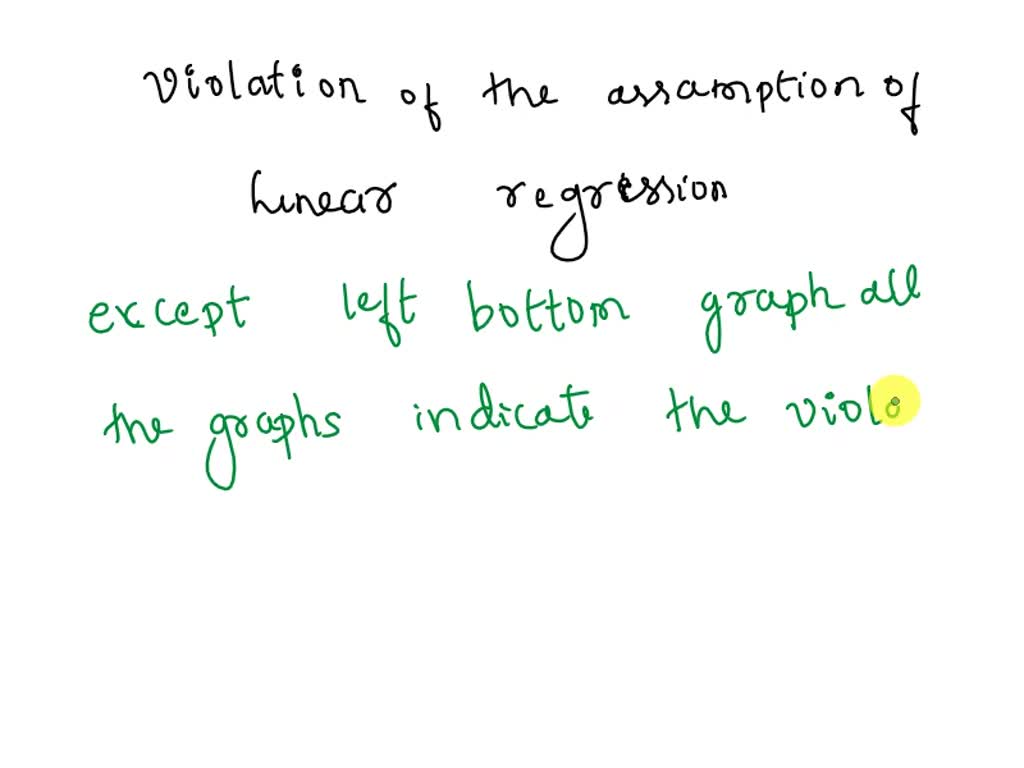 Violation of the assamption of
linear regression
except left bottom graph all
the graphs indicate the viola